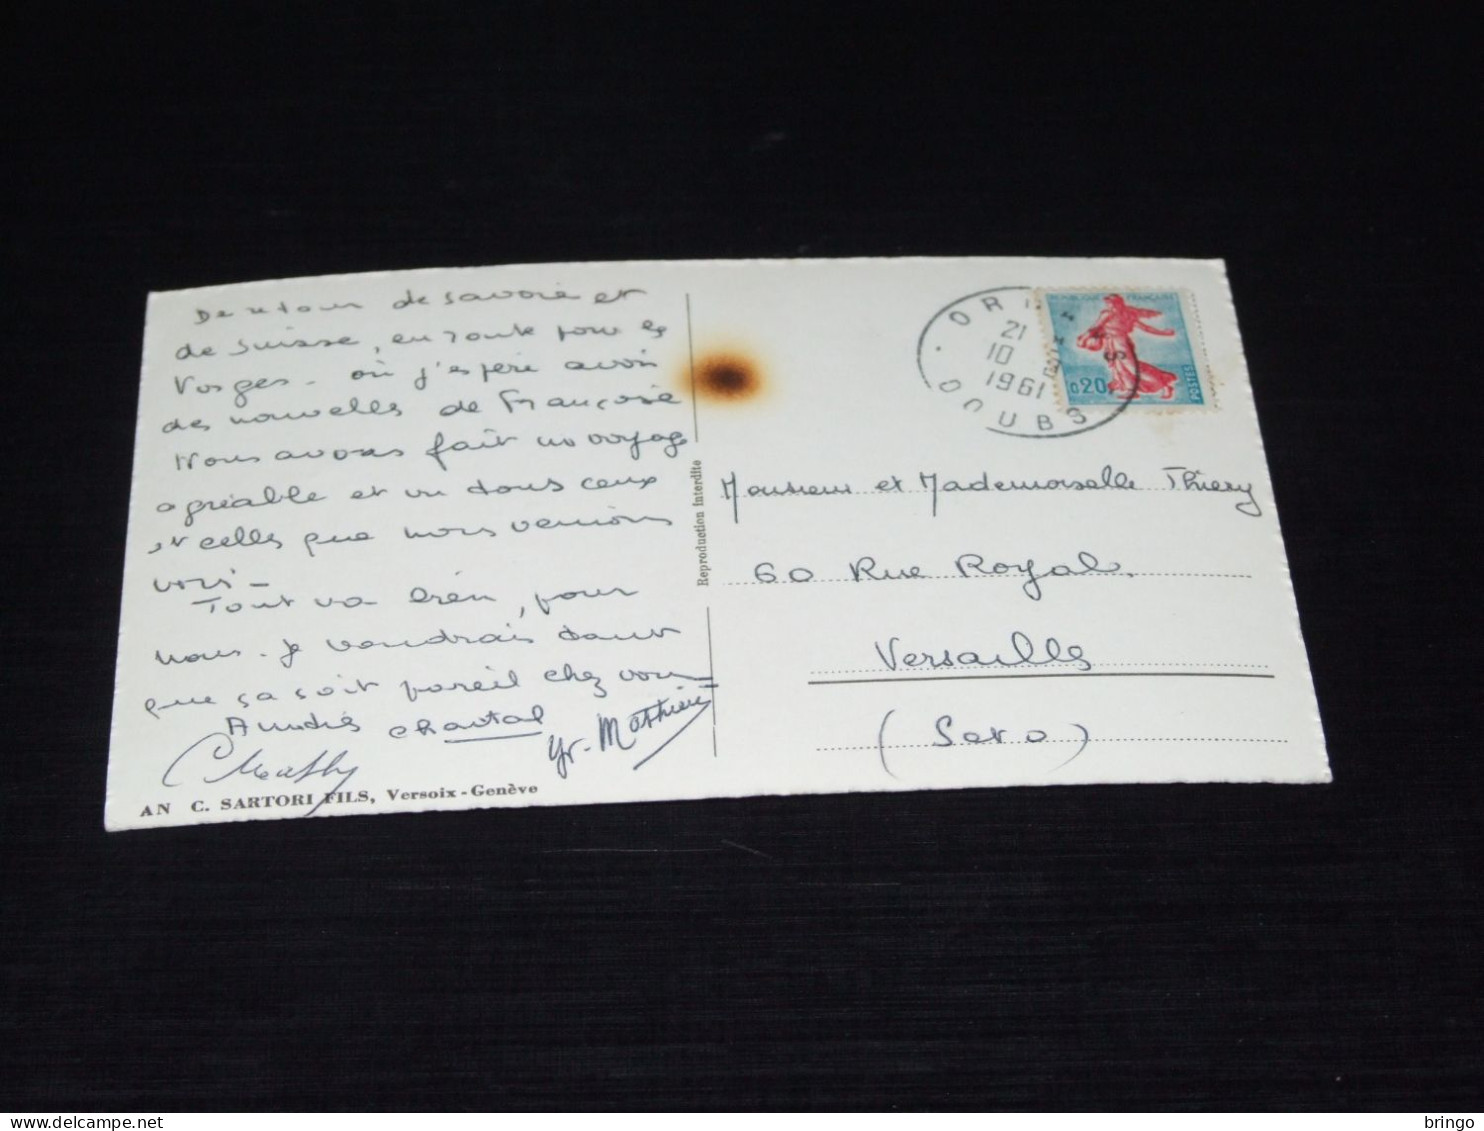 De retour de Savoie et
de Suisse, en route pour les
Vosges - où j'espère avoir
des nouvelles de Françoise
Nous avons fait un voyage
agréable et vu tous ceux
et celles que nous venions
voir -
Tout va bien, pour
nous. Je voudrais tant
que ça soit pareil chez vous
Andrée Chantal
Yv. Mathieu
AN C. SARTORI FILS, Versoix - Genève
Reproduction interdite
21
10
1961
DOUBS
REPUBLIQUE FRANÇAISE
0,20
POSTES
Monsieur et Mademoiselle Thiery
60 Rue Royale.
Versailles
(Seto)
bringo